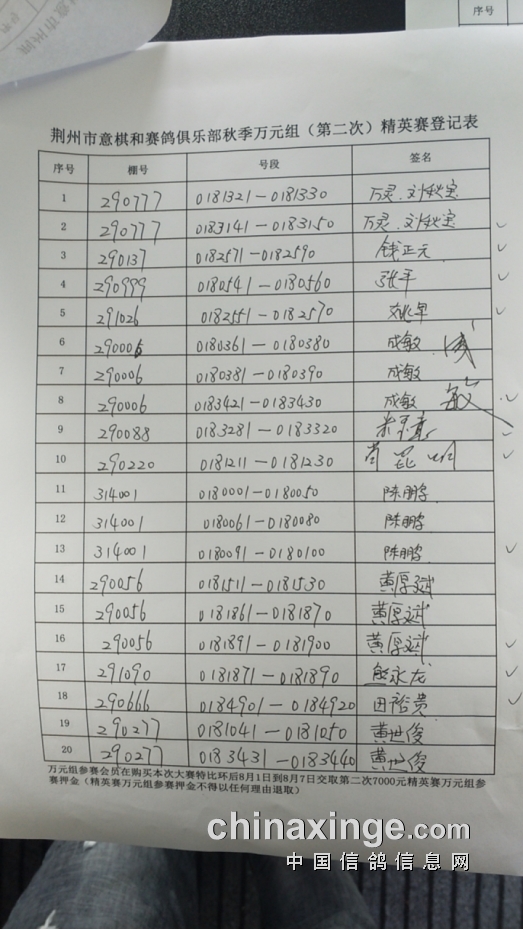 序号
荆州市意棋和赛鸽俱乐部秋季万元组（第二次）精英赛登记表
序号 棚号 号段 签名
1 290777 0181321—0181330 万灵.刘秋宝
2 290777 0183141—0183150 万灵.刘秋宝
3 290137 0182571—0182590 钱正元
4 290999 0180541—0180560 张平
5 291026 0182551—0182570 姚军
6 290006 0180361—0180380 成敏
7 290006 0180381—0180390 成敏
8 290006 0183421—0183430 成敏 敏
9 290088 0183281—0183320
10 290220 0181211—0181230
11 314001 0180001—0180050 陈鹏
12 314001 0180061—0180080 陈鹏
13 314001 0180091—0180100 陈鹏
14 290056 0181511—0181530 黄厚斌
15 290056 0181861—0181870 黄厚斌
16 290056 0181891—0181900 黄厚斌
17 291090 0181871—0181890 熊永龙
18 290666 0184901—0184920 田裕贵
19 290277 0181041—0181050 黄世俊
20 290277 0183431—0183440 黄世俊
万元组参赛会员在购买本次大赛特比环后8月1日到8月7日交取第二次7000元精英赛万元组参
赛押金（精英赛万元组参赛押金不得以任何理由退取）
chinaxinge.com
中国信鸽信息网